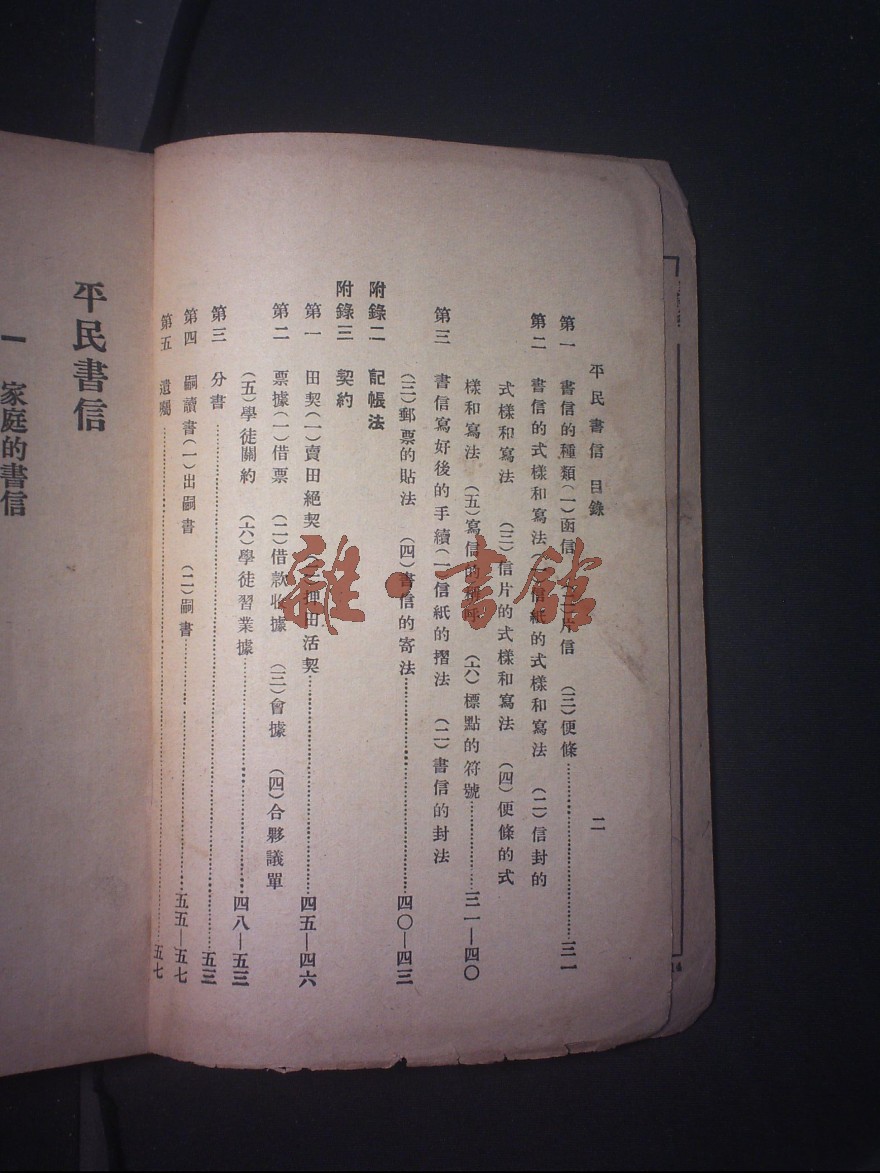 平民書信 目錄 二
第一 書信的種類(一)函信 (二)片信 (三)便條……三一
第二 書信的式樣和寫法(一)信紙的式樣和寫法 (二)信封的
式樣和寫法 (三)信片的式樣和寫法 (四)便條的式
樣和寫法 (五)寫信的 (六)標點的符號……三一—四〇
第三 書信寫好後的手續(一)信紙的摺法 (二)書信的封法
(三)郵票的貼法 (四)書信的寄法……四〇—四三
附錄二 記帳法
附錄三 契約
第一 田契(一)賣田絕契 (二)押田活契……四五—四六
第二 票據(一)借票 (二)借款收據 (三)會據 (四)合夥議單
(五)學徒關約 (六)學徒習業據……四八—五三
第三 分書……五三
第四 嗣讀書(一)出嗣書 (二)嗣書……五五—五七
第五 遺囑……五七
平民書信
一 家庭的書信
雜·書館